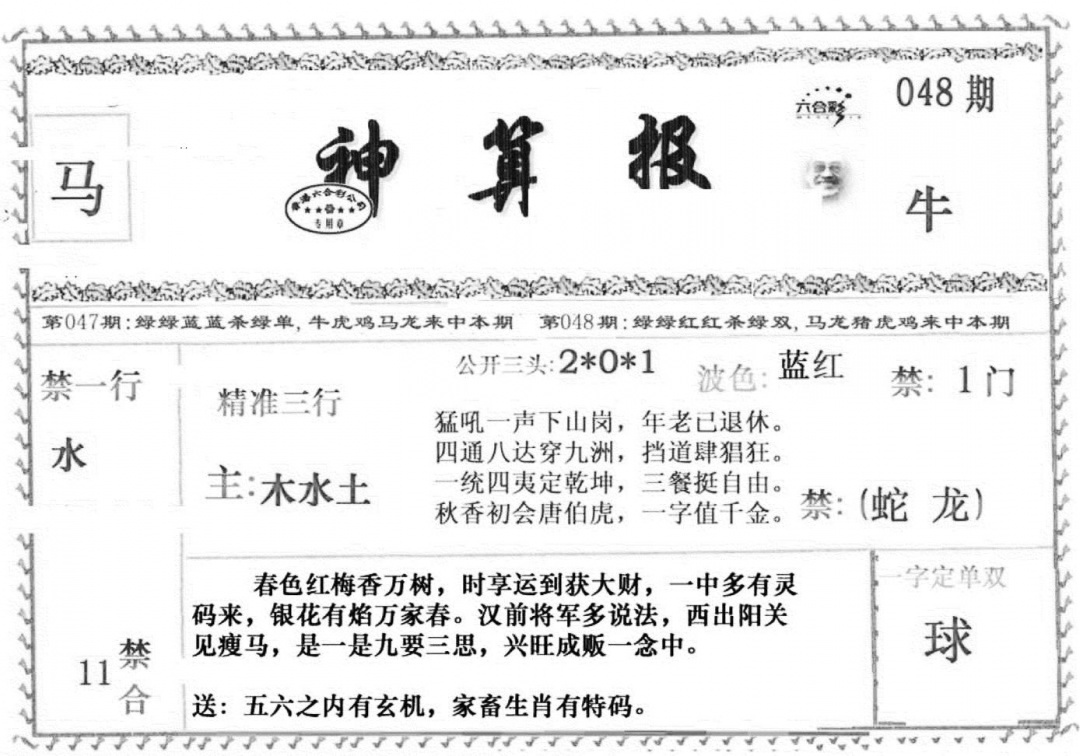 048期
六合彩
马
神算报
香港六合彩公司
专用章
牛
第047期:绿绿蓝蓝杀绿单,牛虎鸡马龙来中本期 第048期:绿绿红红杀绿双,马龙猪虎鸡来中本期
禁一行
水
精准三行
主:木水土
公开三头:2*0*1
波色:蓝红
禁:1门
猛吼一声下山岗，年老已退休。
四通八达穿九洲，挡道肆猖狂。
一统四夷定乾坤，三餐挺自由。
秋香初会唐伯虎，一字值千金。
禁:(蛇 龙)
11禁合
春色红梅香万树，时享运到获大财，一中多有灵
码来，银花有焰万家春。汉前将军多说法，西出阳关
见瘦马，是一是九要三思，兴旺成贩一念中。
送：五六之内有玄机，家畜生肖有特码。
一字定单双
球